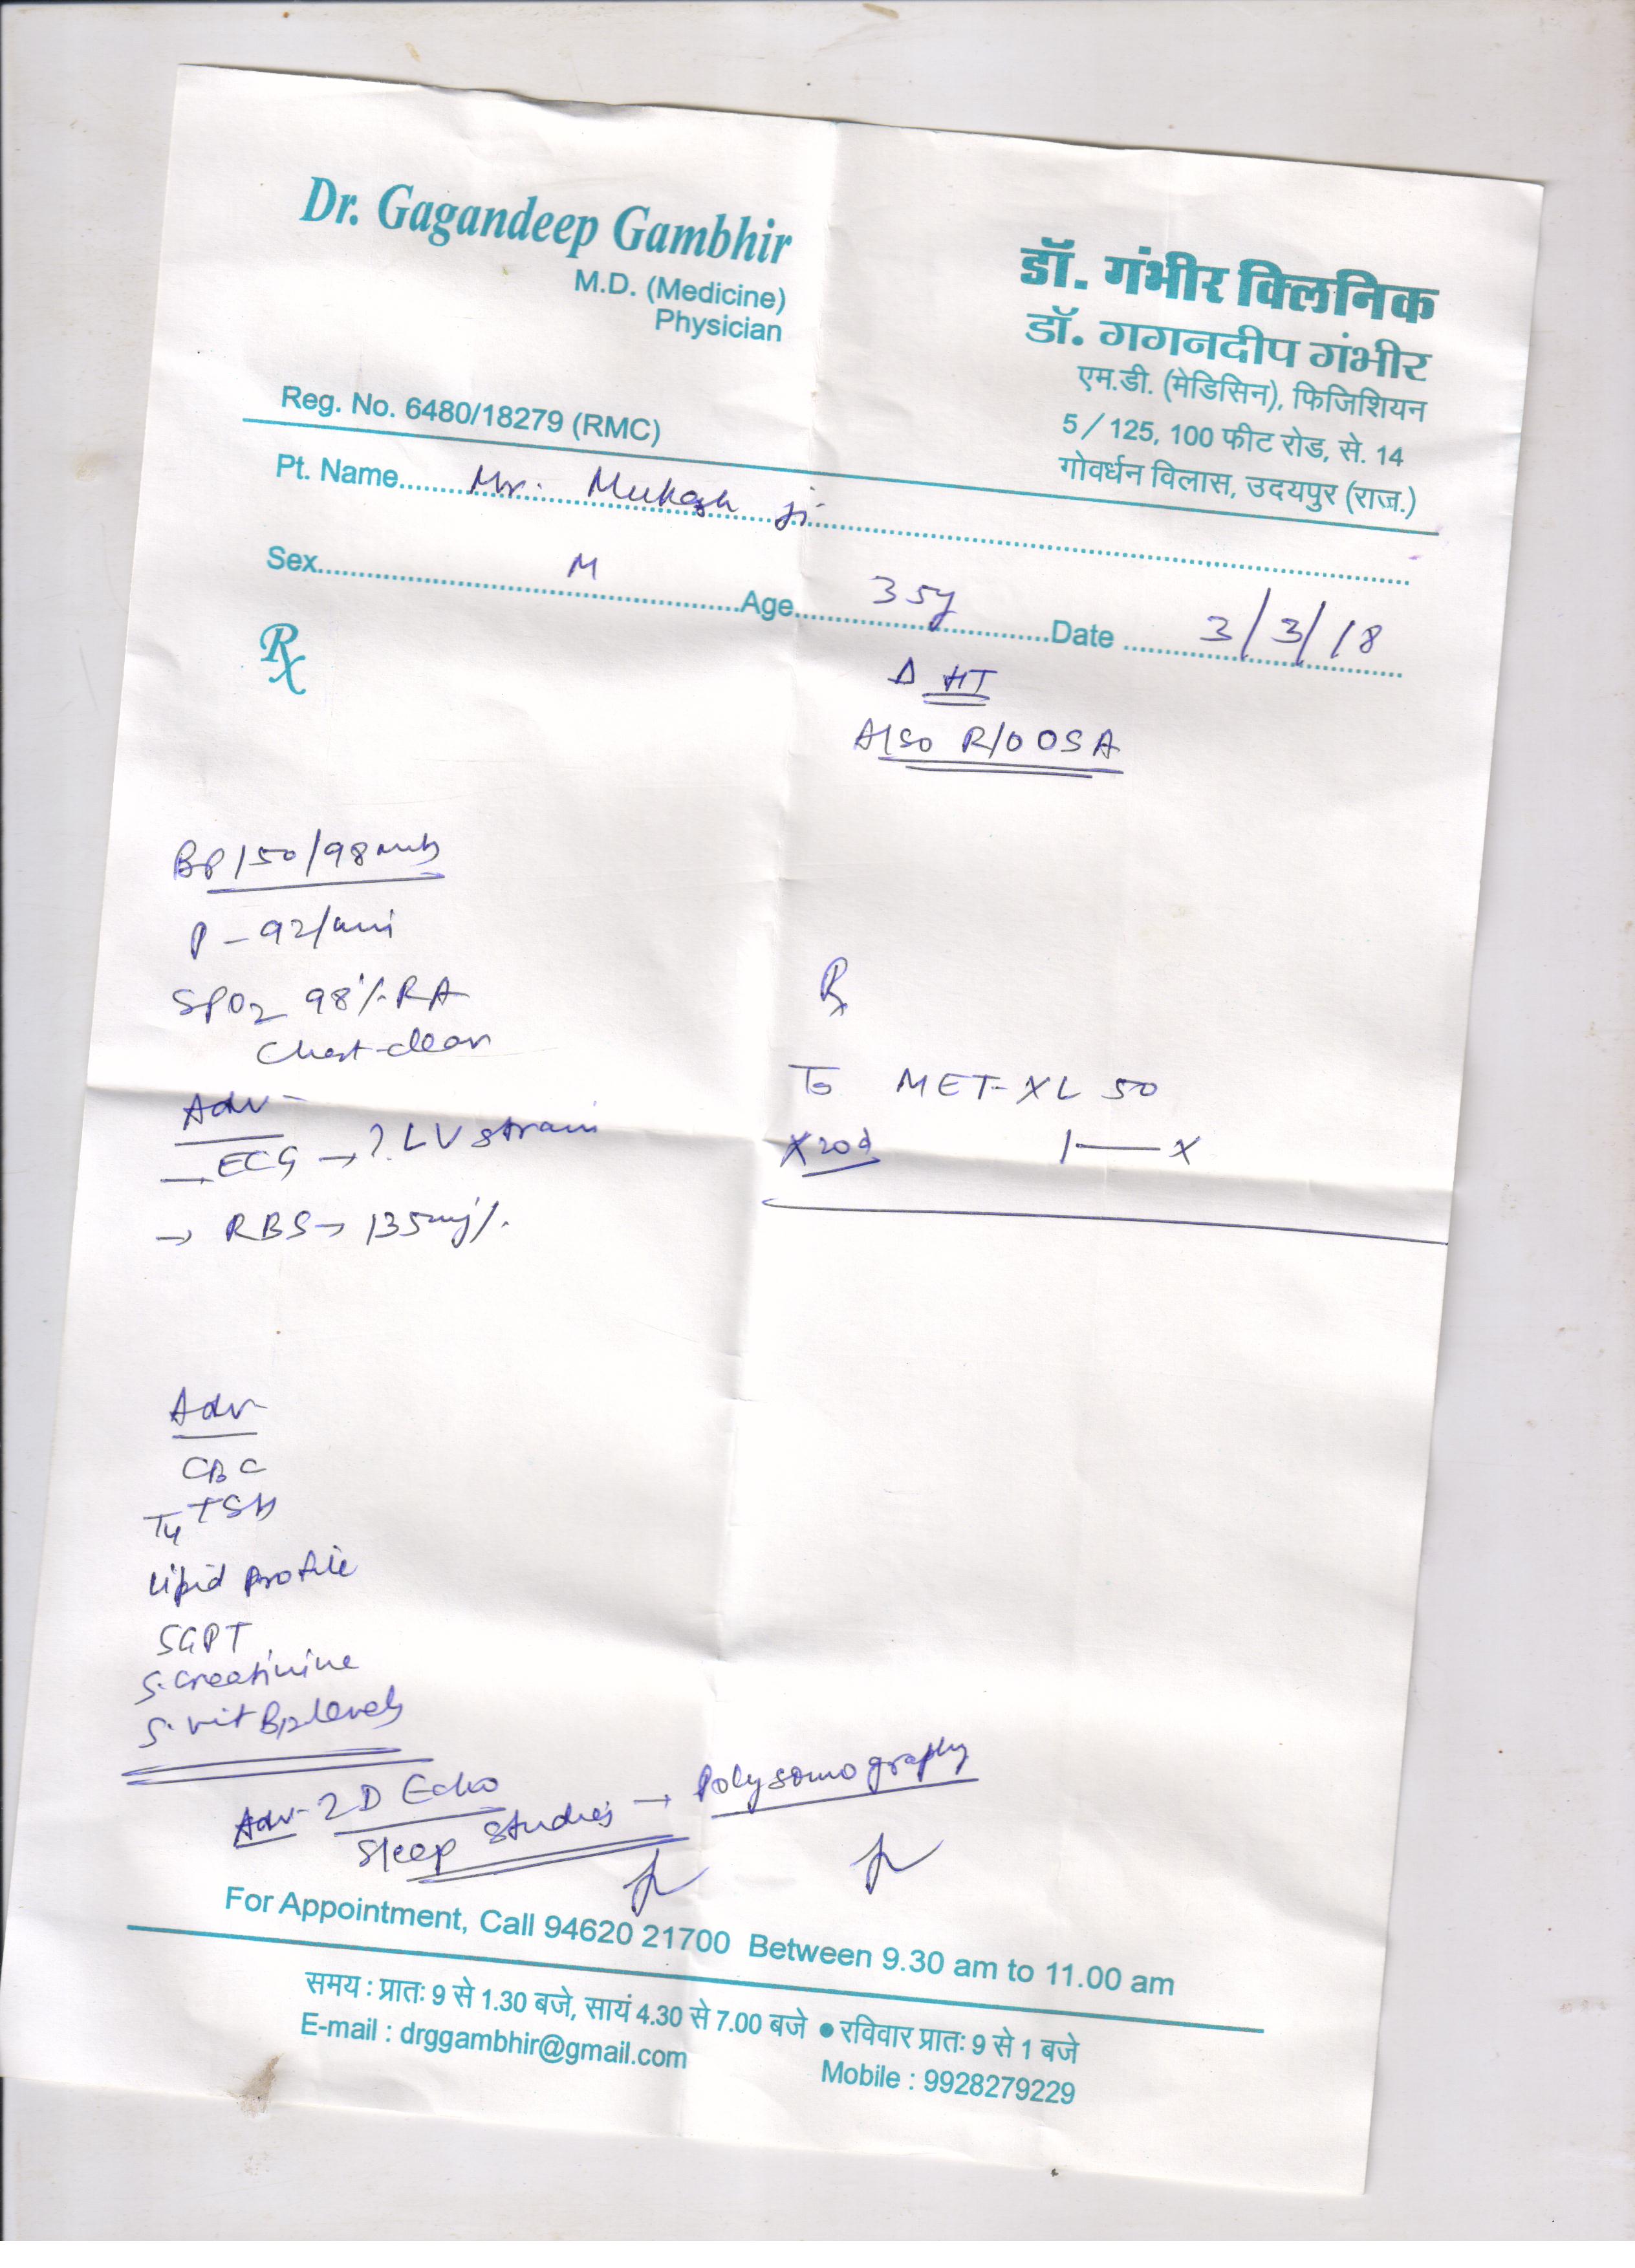 Dr. Gagandeep Gambhir
M.D. (Medicine)
Physician
Reg. No. 6480/18279 (RMC)
डॉ. गंभीर क्लिनिक
डॉ. गगनदीप गंभीर
एम.डी. (मेडिसिन), फिजिशियन
5/125, 100 फीट रोड, से. 14
गोवर्धन विलास, उदयपुर (राज.)
Pt. Name Mr. Mukesh ji
Sex M Age 35y Date 3/3/18
Rx
Δ HT
Also R/O OSA
BP 150/98
P - 92/min
SPO2 98% RA
Chest-clear
Adv-
ECG → ? LV strain
→ RBS → 135mg%
Rx
MET-XL 50
X 20d 1—x
Adv-
CBC
T4 TSH
Lipid Profile
SGPT
S. Creatinine
S. vit B12 levels
Adv- 2D Echo
Sleep Studies → Polysomography
For Appointment, Call 94620 21700 Between 9.30 am to 11.00 am
समय : प्रातः 9 से 1.30 बजे, सायं 4.30 से 7.00 बजे ● रविवार प्रातः 9 से 1 बजे
E-mail : drggambhir@gmail.com Mobile : 9928279229